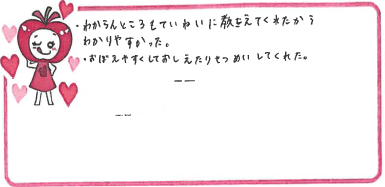 ・わからんところもていねいに教えてくれたから
わかりやすかった。
・おぼえやすくしておしえたりせつめいしてくれた。